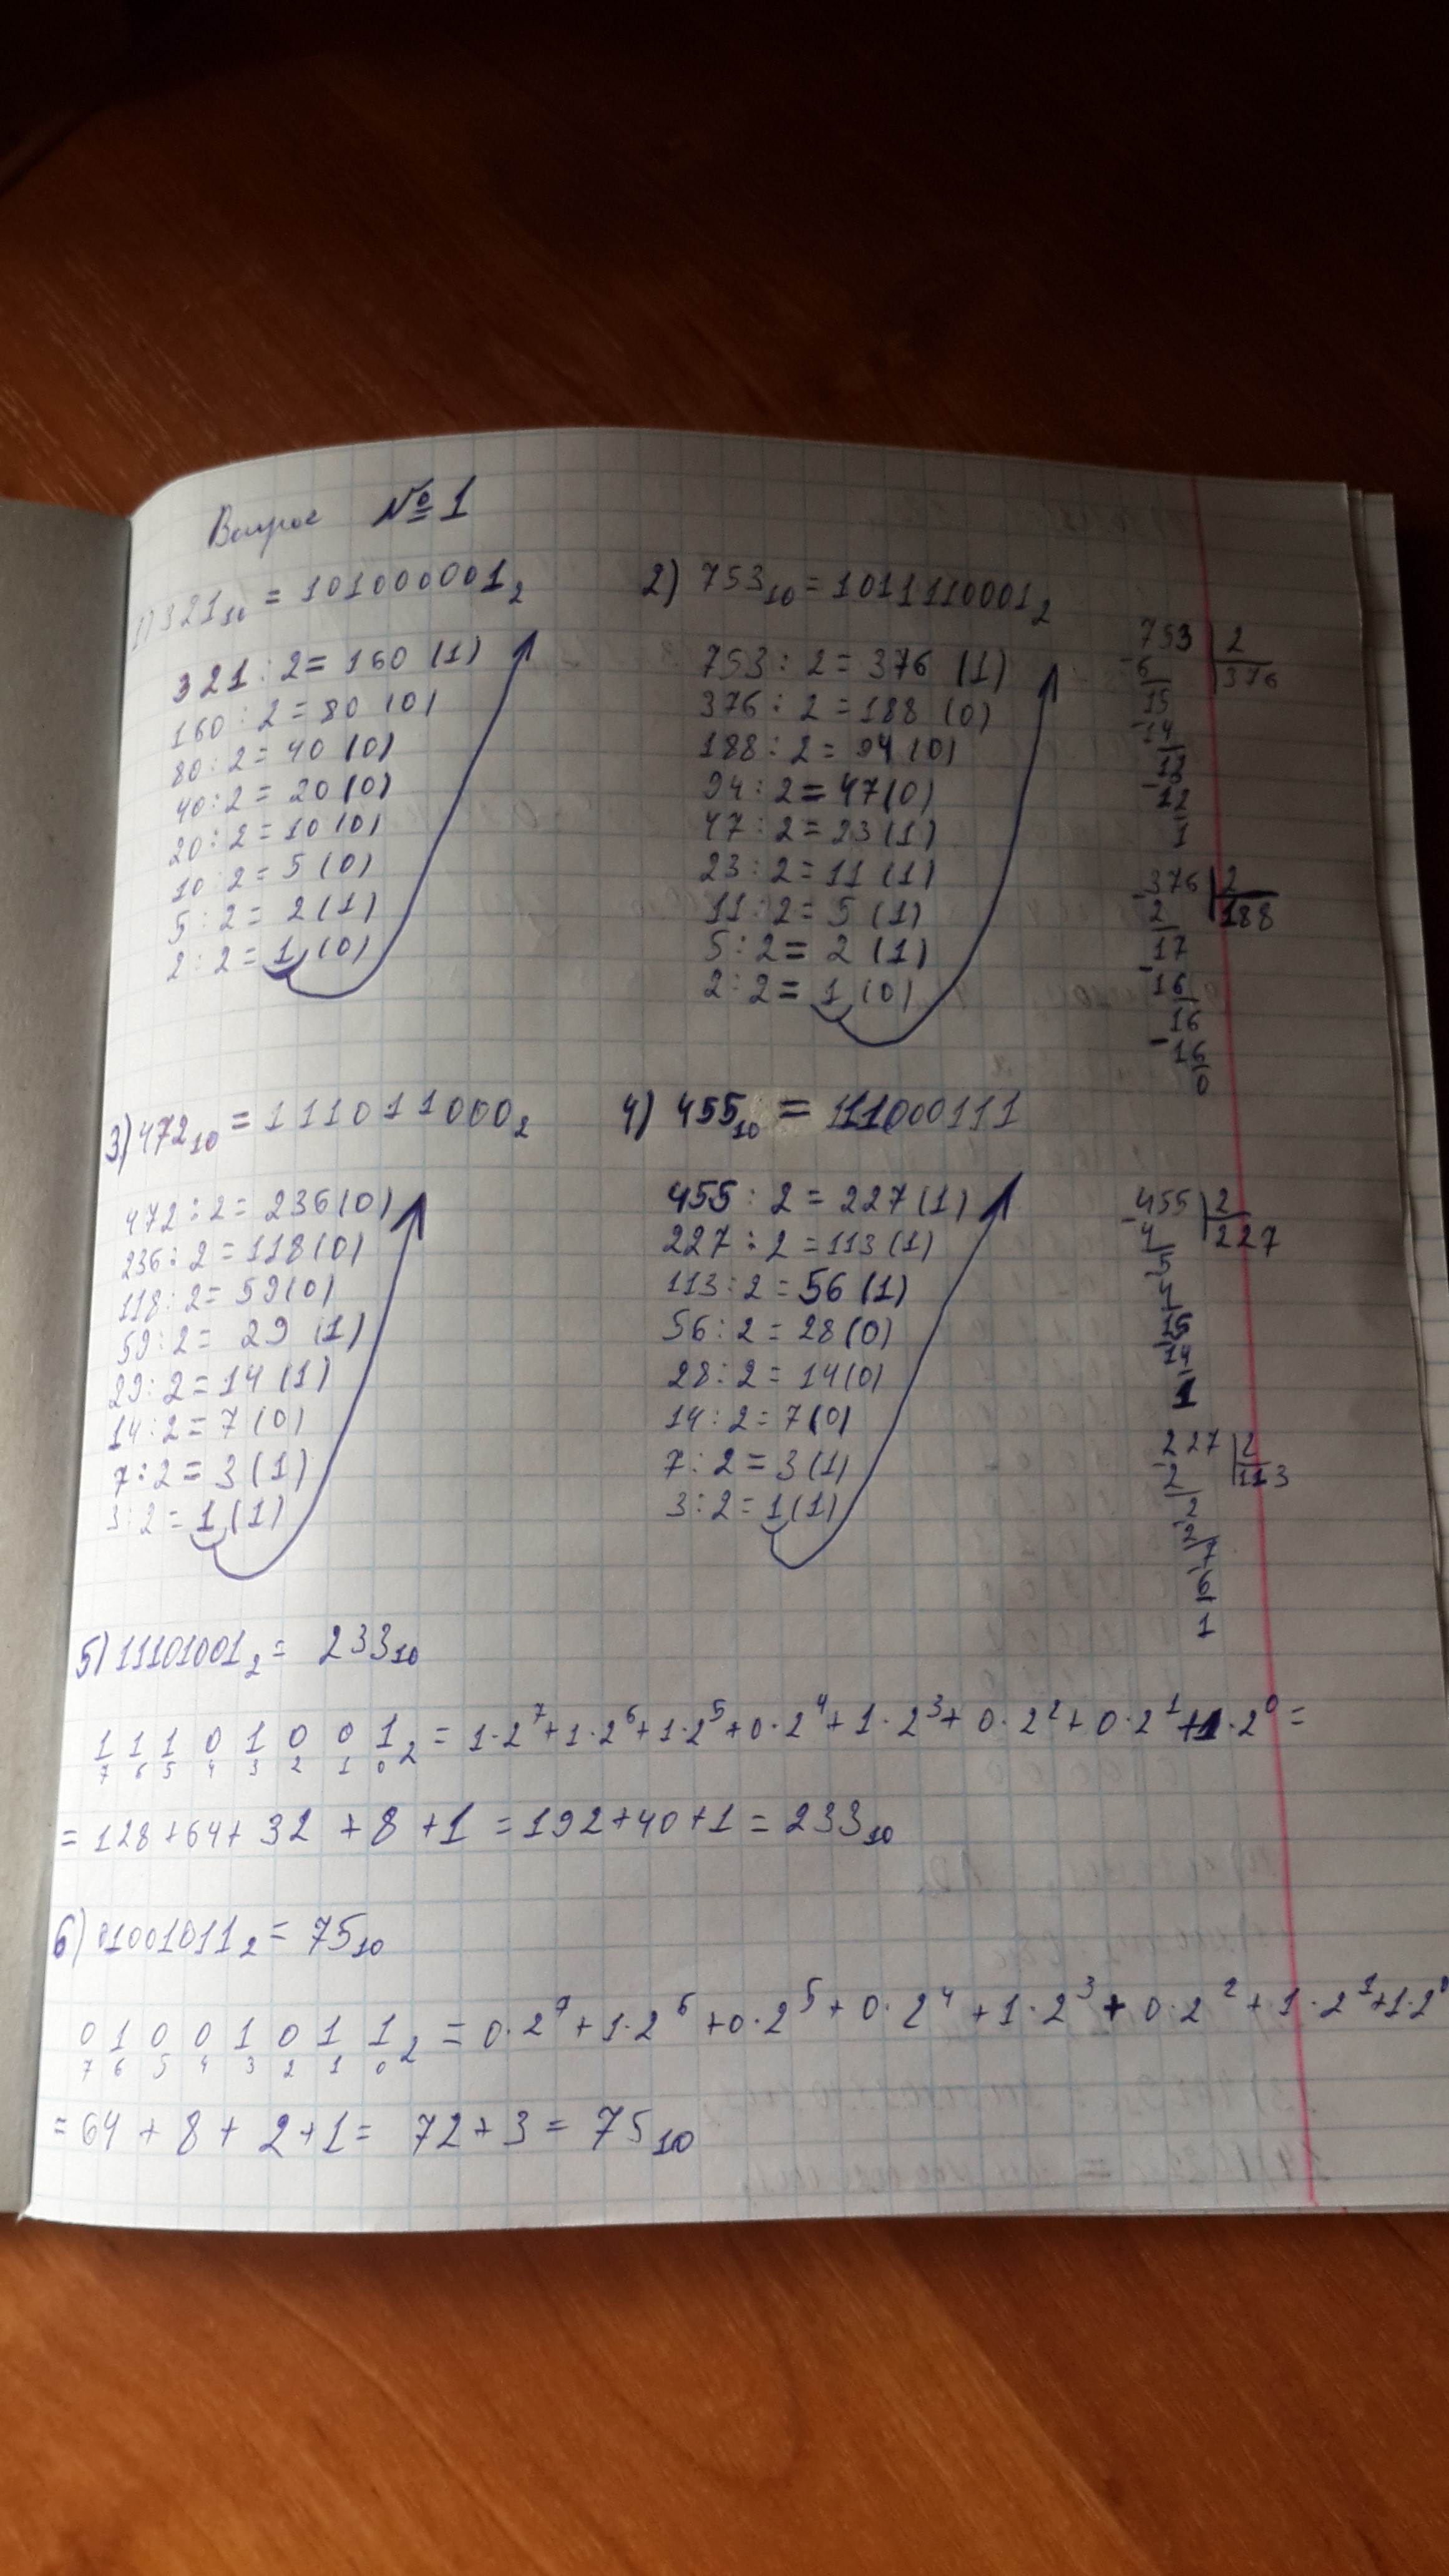 Вопрос №1
1) 321₁₀ = 101000001₂
321 : 2 = 160 (1)
160 : 2 = 80 (0)
80 : 2 = 40 (0)
40 : 2 = 20 (0)
20 : 2 = 10 (0)
10 : 2 = 5 (0)
5 : 2 = 2 (1)
2 : 2 = 1 (0)
2) 753₁₀ = 1011110001₂
753 : 2 = 376 (1)
376 : 2 = 188 (0)
188 : 2 = 94 (0)
94 : 2 = 47 (0)
47 : 2 = 23 (1)
23 : 2 = 11 (1)
11 : 2 = 5 (1)
5 : 2 = 2 (1)
2 : 2 = 1 (0)
753 | 2
-6 | 376
15
-14
13
-12
1
-376 | 2
2 | 188
17
-16
16
-16
0
3) 472₁₀ = 111011000₂
472 : 2 = 236 (0)
236 : 2 = 118 (0)
118 : 2 = 59 (0)
59 : 2 = 29 (1)
29 : 2 = 14 (1)
14 : 2 = 7 (0)
7 : 2 = 3 (1)
3 : 2 = 1 (1)
4) 455₁₀ = 111000111
455 : 2 = 227 (1)
227 : 2 = 113 (1)
113 : 2 = 56 (1)
56 : 2 = 28 (0)
28 : 2 = 14 (0)
14 : 2 = 7 (0)
7 : 2 = 3 (1)
3 : 2 = 1 (1)
-455 | 2
4 | 227
-5
4
15
14
1
-227 | 2
2 | 113
-2
2
-7
6
1
5) 11101001₂ = 233₁₀
1 1 1 0 1 0 0 1₂ = 1·2⁷ + 1·2⁶ + 1·2⁵ + 0·2⁴ + 1·2³ + 0·2² + 0·2¹ + 1·2⁰ =
7 6 5 4 3 2 1 0
= 128 + 64 + 32 + 8 + 1 = 192 + 40 + 1 = 233₁₀
6) 01001011₂ = 75₁₀
0 1 0 0 1 0 1 1₂ = 0·2⁷ + 1·2⁶ + 0·2⁵ + 0·2⁴ + 1·2³ + 0·2² + 1·2¹ + 1·2⁰
7 6 5 4 3 2 1 0
= 64 + 8 + 2 + 1 = 72 + 3 = 75₁₀